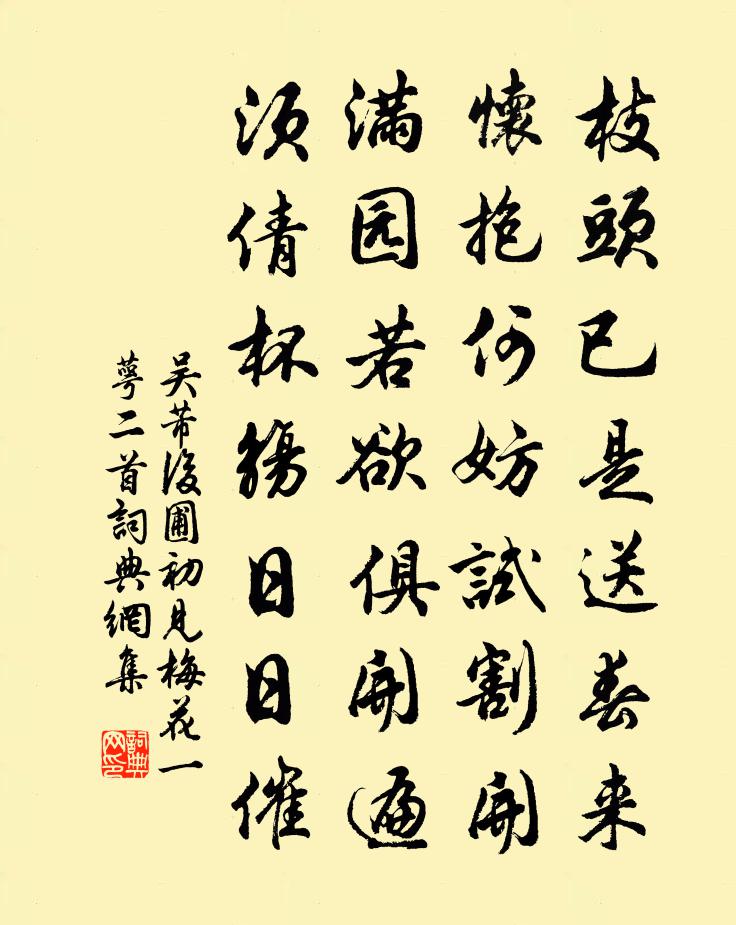 枝頭已是送春来
懐抱何妨試割開
满园若欲俱開遍
须倩杯觴日日催
吴芾後圃初見梅花一
萼二首詞典網集
詞典网印